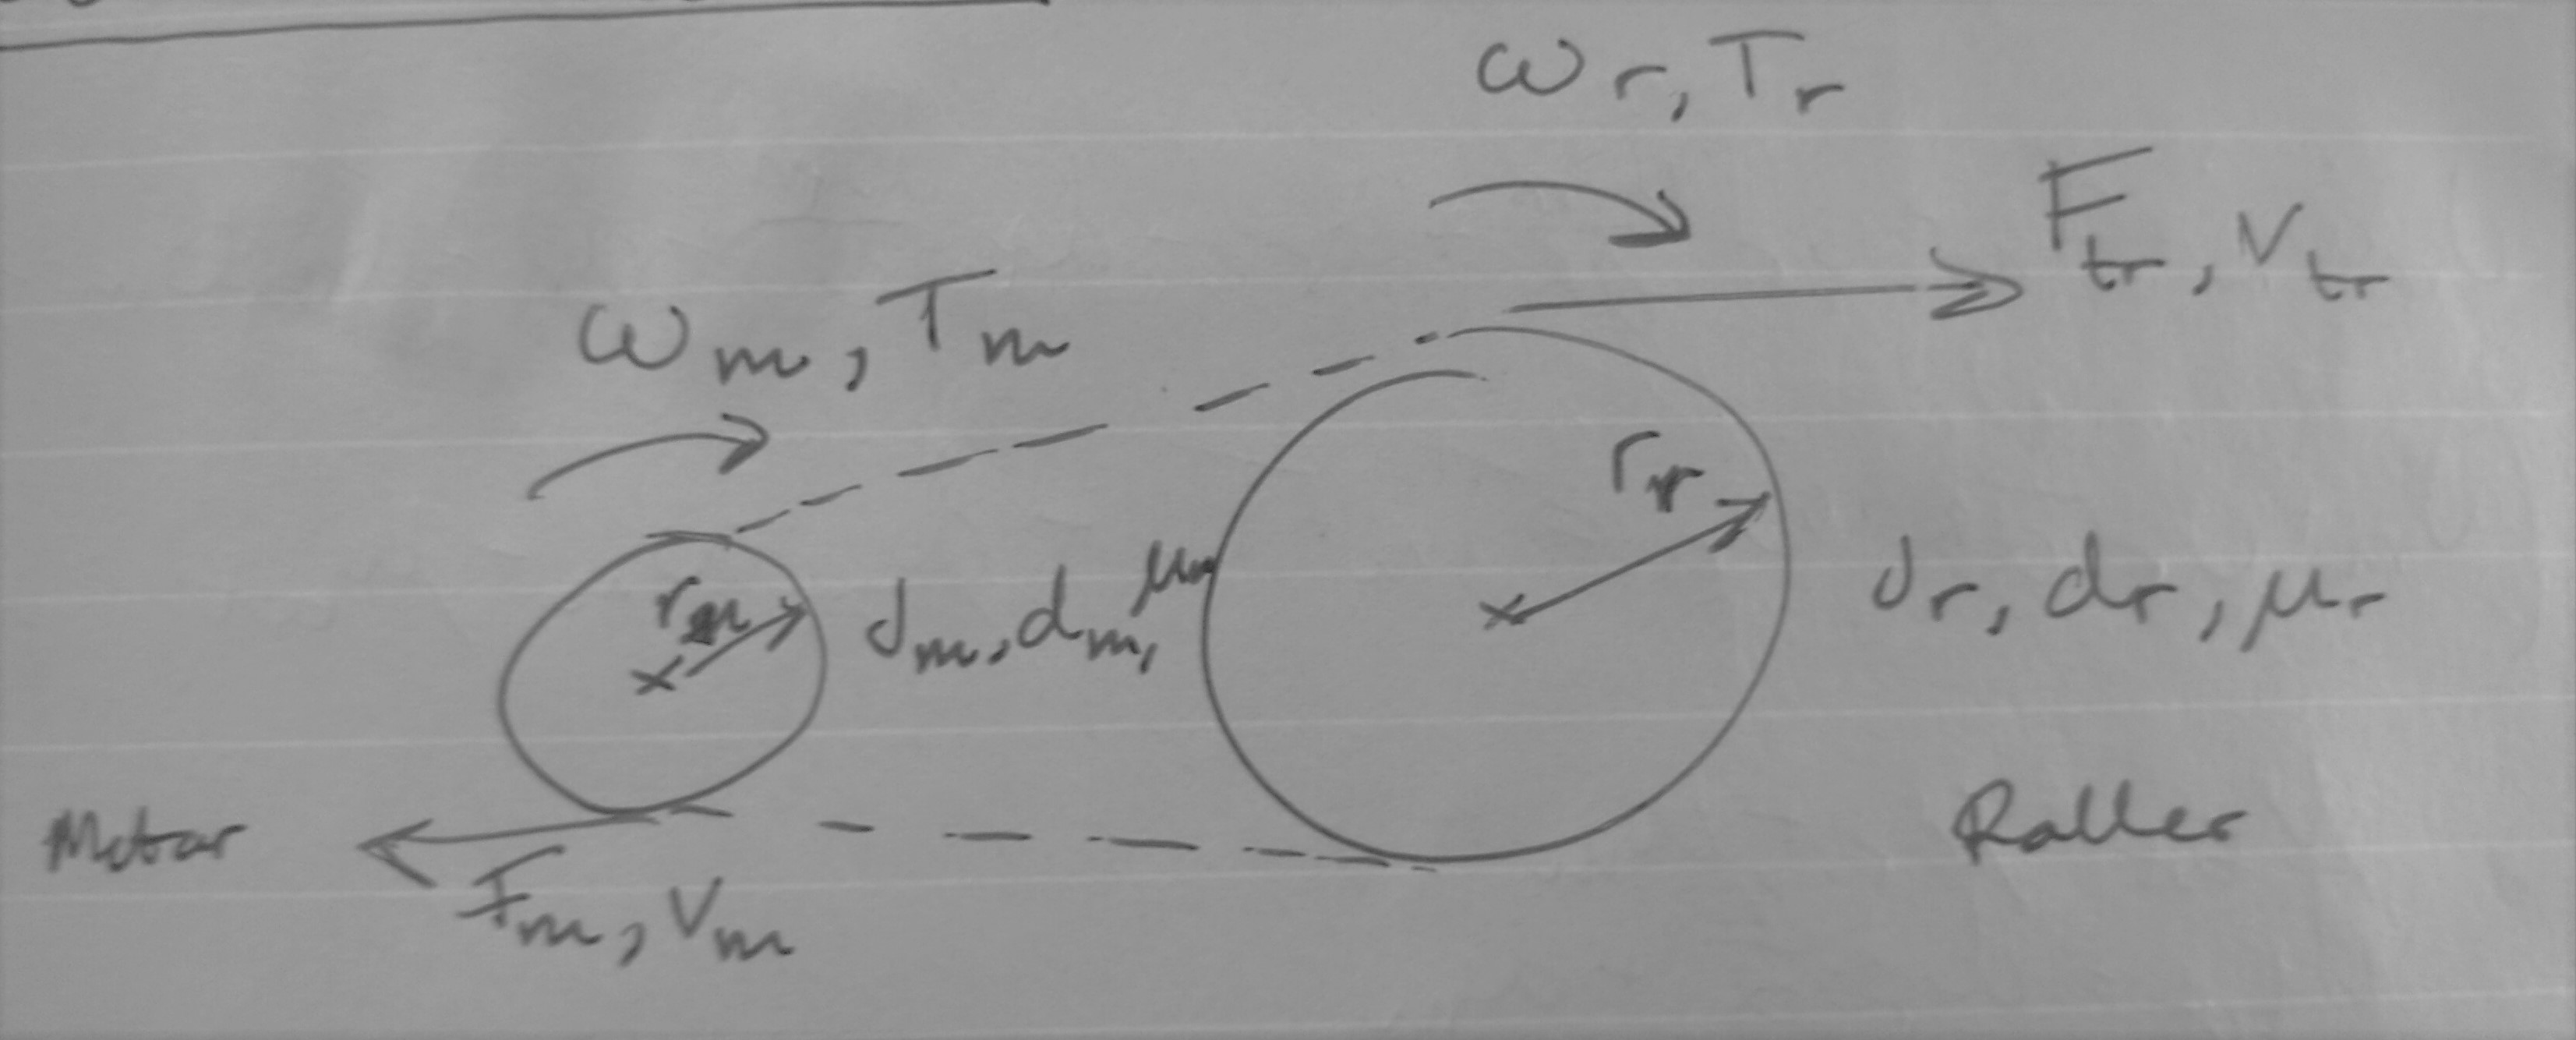 ωr, Tr
Ftr, Vtr
ωm, Tm
rr
rm
Jm, dm, μm
Jr, dr, μr
Motor
Roller
Fm, Vm